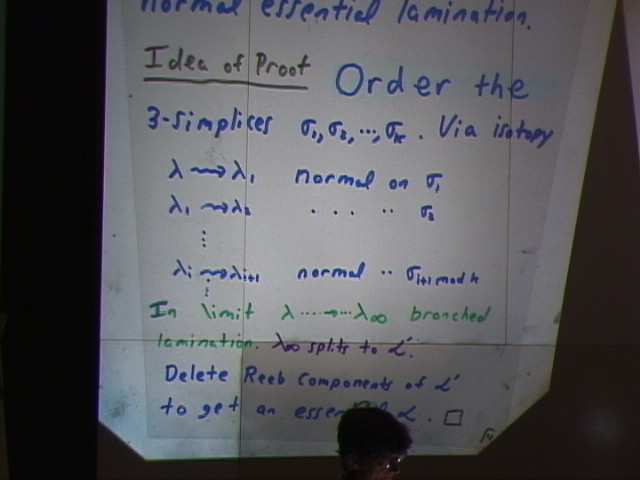 normal essential lamination.
Idea of Proof Order the
3-simplices σ₁, σ₂, ..., σₖ. Via isotopy
λ ⇝ λ₁ normal on σ₁
λ₁ ⇝ λ₂ . . . .. σ₂
⋮
λᵢ ⇝ λᵢ₊₁ normal .. σᵢ₊₁ mod k
⋮
In limit λ ...→... λ∞ branched
lamination. λ∞ splits to ℒ'.
Delete Reeb Components of ℒ'
to get an ℒ. □